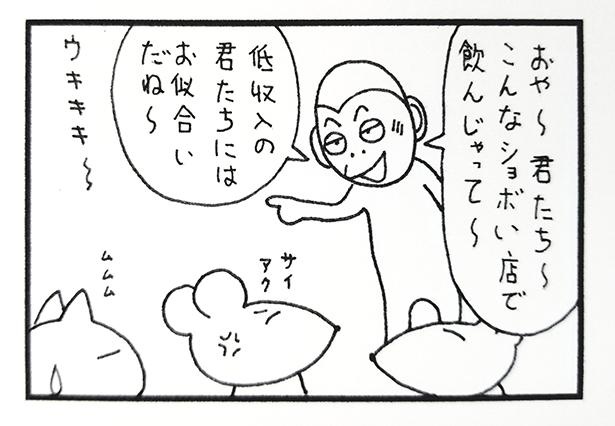 おや〜 君たち〜
こんなショボい店で
飲んじゃって〜
低収入の
君たちには
お似合い
だね〜
ウキキキ〜
サイ
アク
ムムム